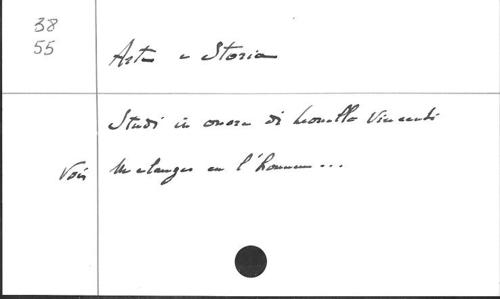 38
55
Arte e Storia
Studi in onore di Leonello Vincenti
Voir Mélanges en l'honneur...